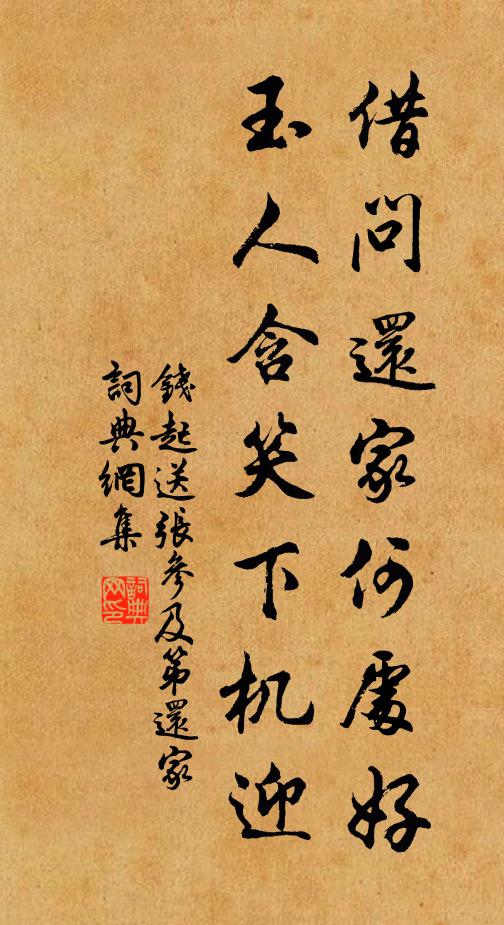 借問還家何處好
玉人含笑下机迎
錢起送張參及第還家
詞典網集
詞典网印